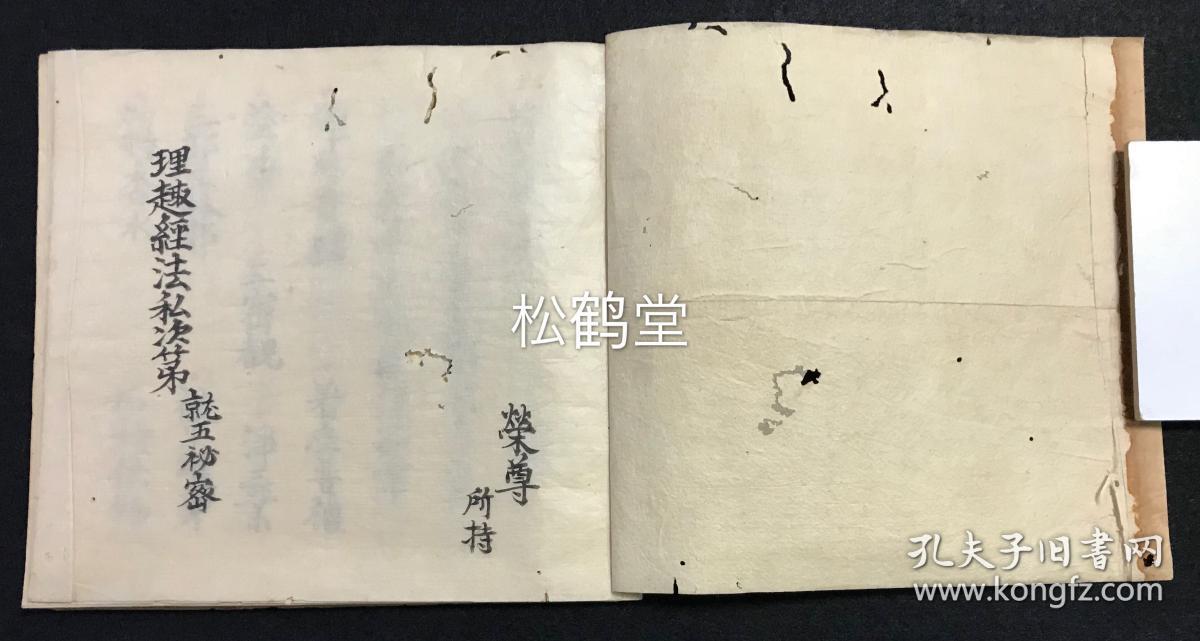 榮尊
所持
理趣經法私次第
就五祕密
松鹤堂
孔夫子旧书网
www.kongfz.com